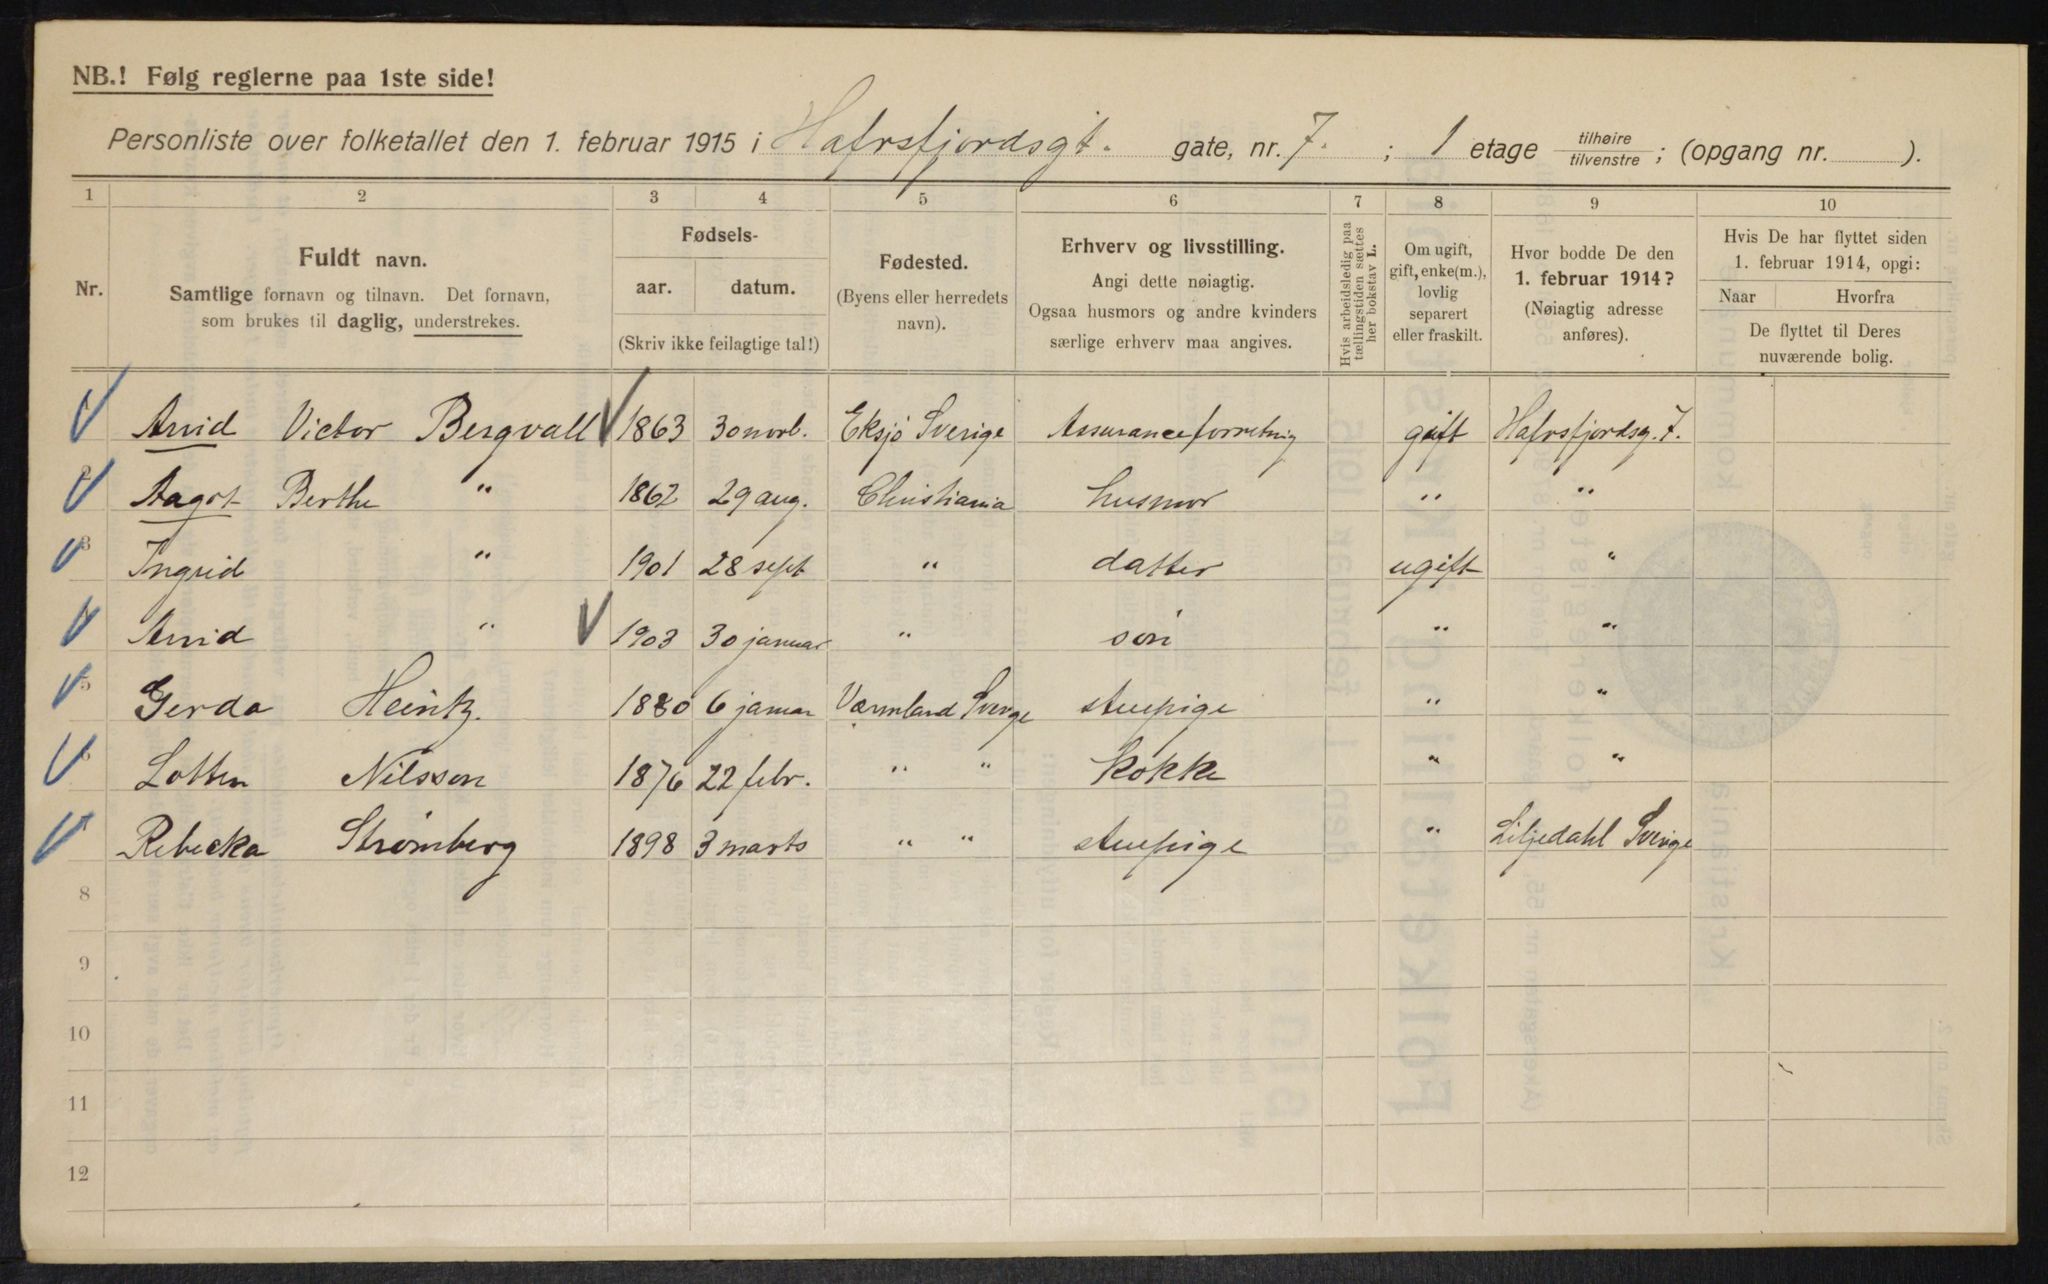 NB.! Følg reglerne paa 1ste side!
Personliste over folketallet den 1. februar 1915 i Hafrsfjordsgt. gate, nr. 7. ; 1 etage tilhøire tilvenstre ; (opgang nr. ).
1 2 3 4 5 6 7 8 9 10
Nr.
Fuldt navn.
Samtlige fornavn og tilnavn. Det fornavn,
som brukes til daglig, understrekes.
Fødsels-
aar. datum.
(Skriv ikke feilagtige tal!)
Fødested.
(Byens eller herredets
navn).
Erhverv og livsstilling.
Angi dette nøiagtig.
Ogsaa husmors og andre kvinders
særlige erhverv maa angives.
Hvis arbeidsledig paa
tællingstiden sættes
her bokstav L.
Om ugift,
gift, enke(m.),
lovlig
separert
eller fraskilt.
Hvor bodde De den
1. februar 1914?
(Nøiagtig adresse
anføres).
Hvis De har flyttet siden
1. februar 1914, opgi:
Naar Hvorfra
De flyttet til Deres
nuværende bolig.
1 Arvid Victor Bergvall 1863 30 novb. Eksjö Sverige Assuranceforretnig gift Hafrsfjordsg. 7.
2 Aagot Berthe " 1862 29 aug. Christiania husmor " "
3 Ingrid " 1901 28 sept " datter ugift "
4 Arvid " 1903 30 januar " sön " "
5 Gerda Heintz. 1880 6 januar Värmland Sverige stuepige " "
6 Lotten Nilsson 1876 22 febr. " " kokke " "
7 Rebecka Strömberg 1898 3 marts " " stuepige " Liljedahl Sverige
8
9
10
11
12